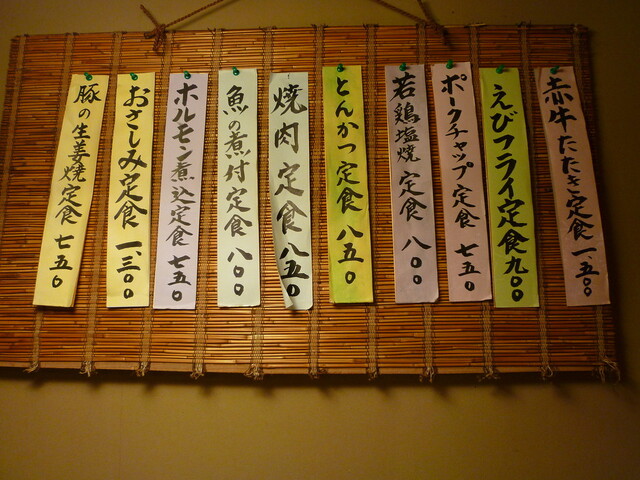 赤牛たたき定食 一、五〇〇
えびフライ定食 九〇〇
ポークチャップ定食 七五〇
若鶏塩焼定食 八〇〇
とんかつ定食 八五〇
焼肉定食 八五〇
魚の煮付定食 八〇〇
ホルモン煮込定食 七五〇
おさしみ定食 一、三〇〇
豚の生姜焼定食 七五〇